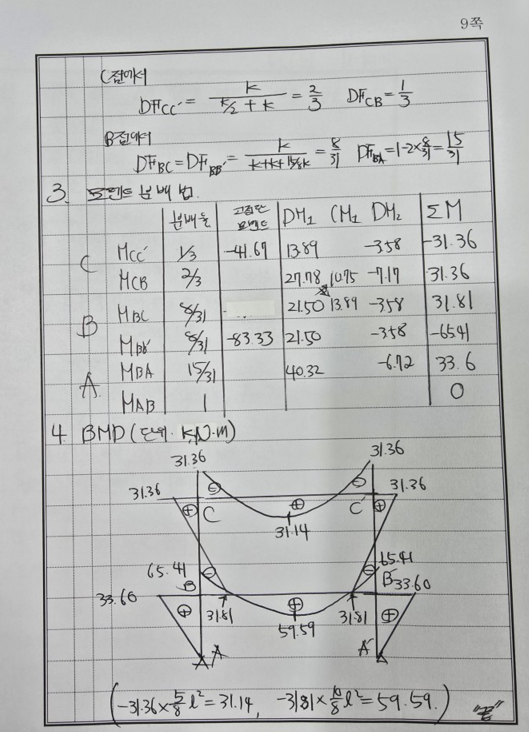 9쪽
C점에서
DFCC' = k / (k/2 + k) = 2/3  DFCB = 1/3
B점에서
DFBC = DFBB' = k / (k+k+15/8k) = 8/31  DFBA = 1-2×8/31 = 15/31
3. 모멘트 분배법.
분배율 고정단모멘트 DM1 CM1 DM2 ΣM
C MCC' 1/3 -41.67 13.89 -3.58 -31.36
MCB 2/3 27.78 10.75 -7.17 31.36
B MBC 8/31 21.50 13.89 -3.58 31.81
MBB' 8/31 -83.33 21.50 -3.58 -65.41
MBA 15/31 40.32 -6.72 33.6
A MAB 1 0
4. BMD (단위: kN·m)
31.36 31.36
31.36 ⊖ ⊖ 31.36
⊕ C ⊕ C' ⊕
31.14
65.41 65.41
B ⊖ ⊖ B'
33.60 33.60
⊕ 31.81 ⊕ 31.81 ⊕
59.59
A A'
(-31.36×5/8l²=31.14, -31.81×10/8l²=59.59.)
"끝"